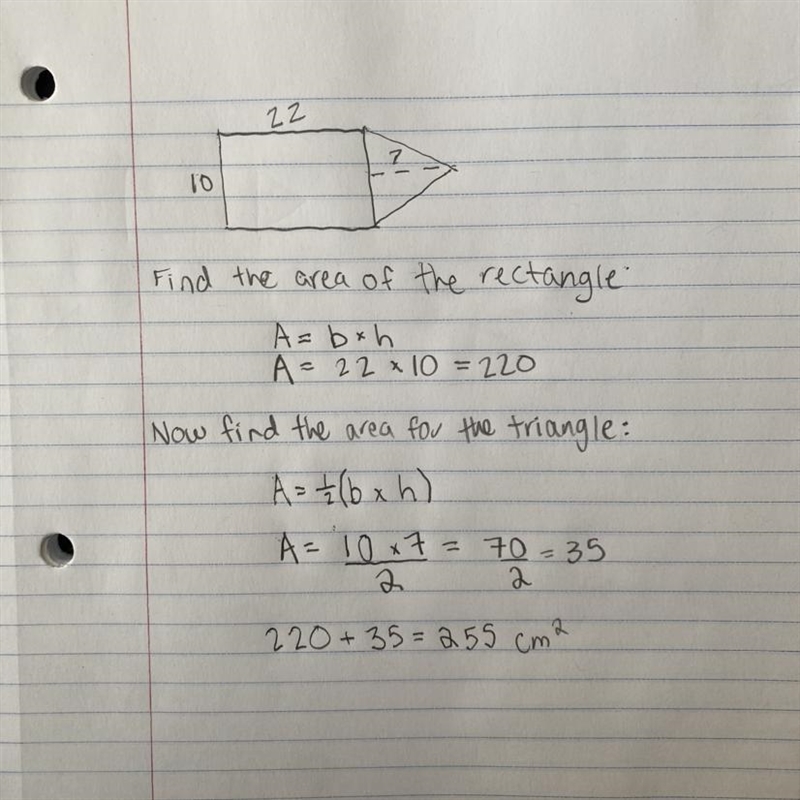 22
10
7
Find the area of the rectangle:
A = b × h
A = 22 × 10 = 220
Now find the area for the triangle:
A = 1/2 (b × h)
A = 10 × 7 / 2 = 70 / 2 = 35
220 + 35 = 255 cm²